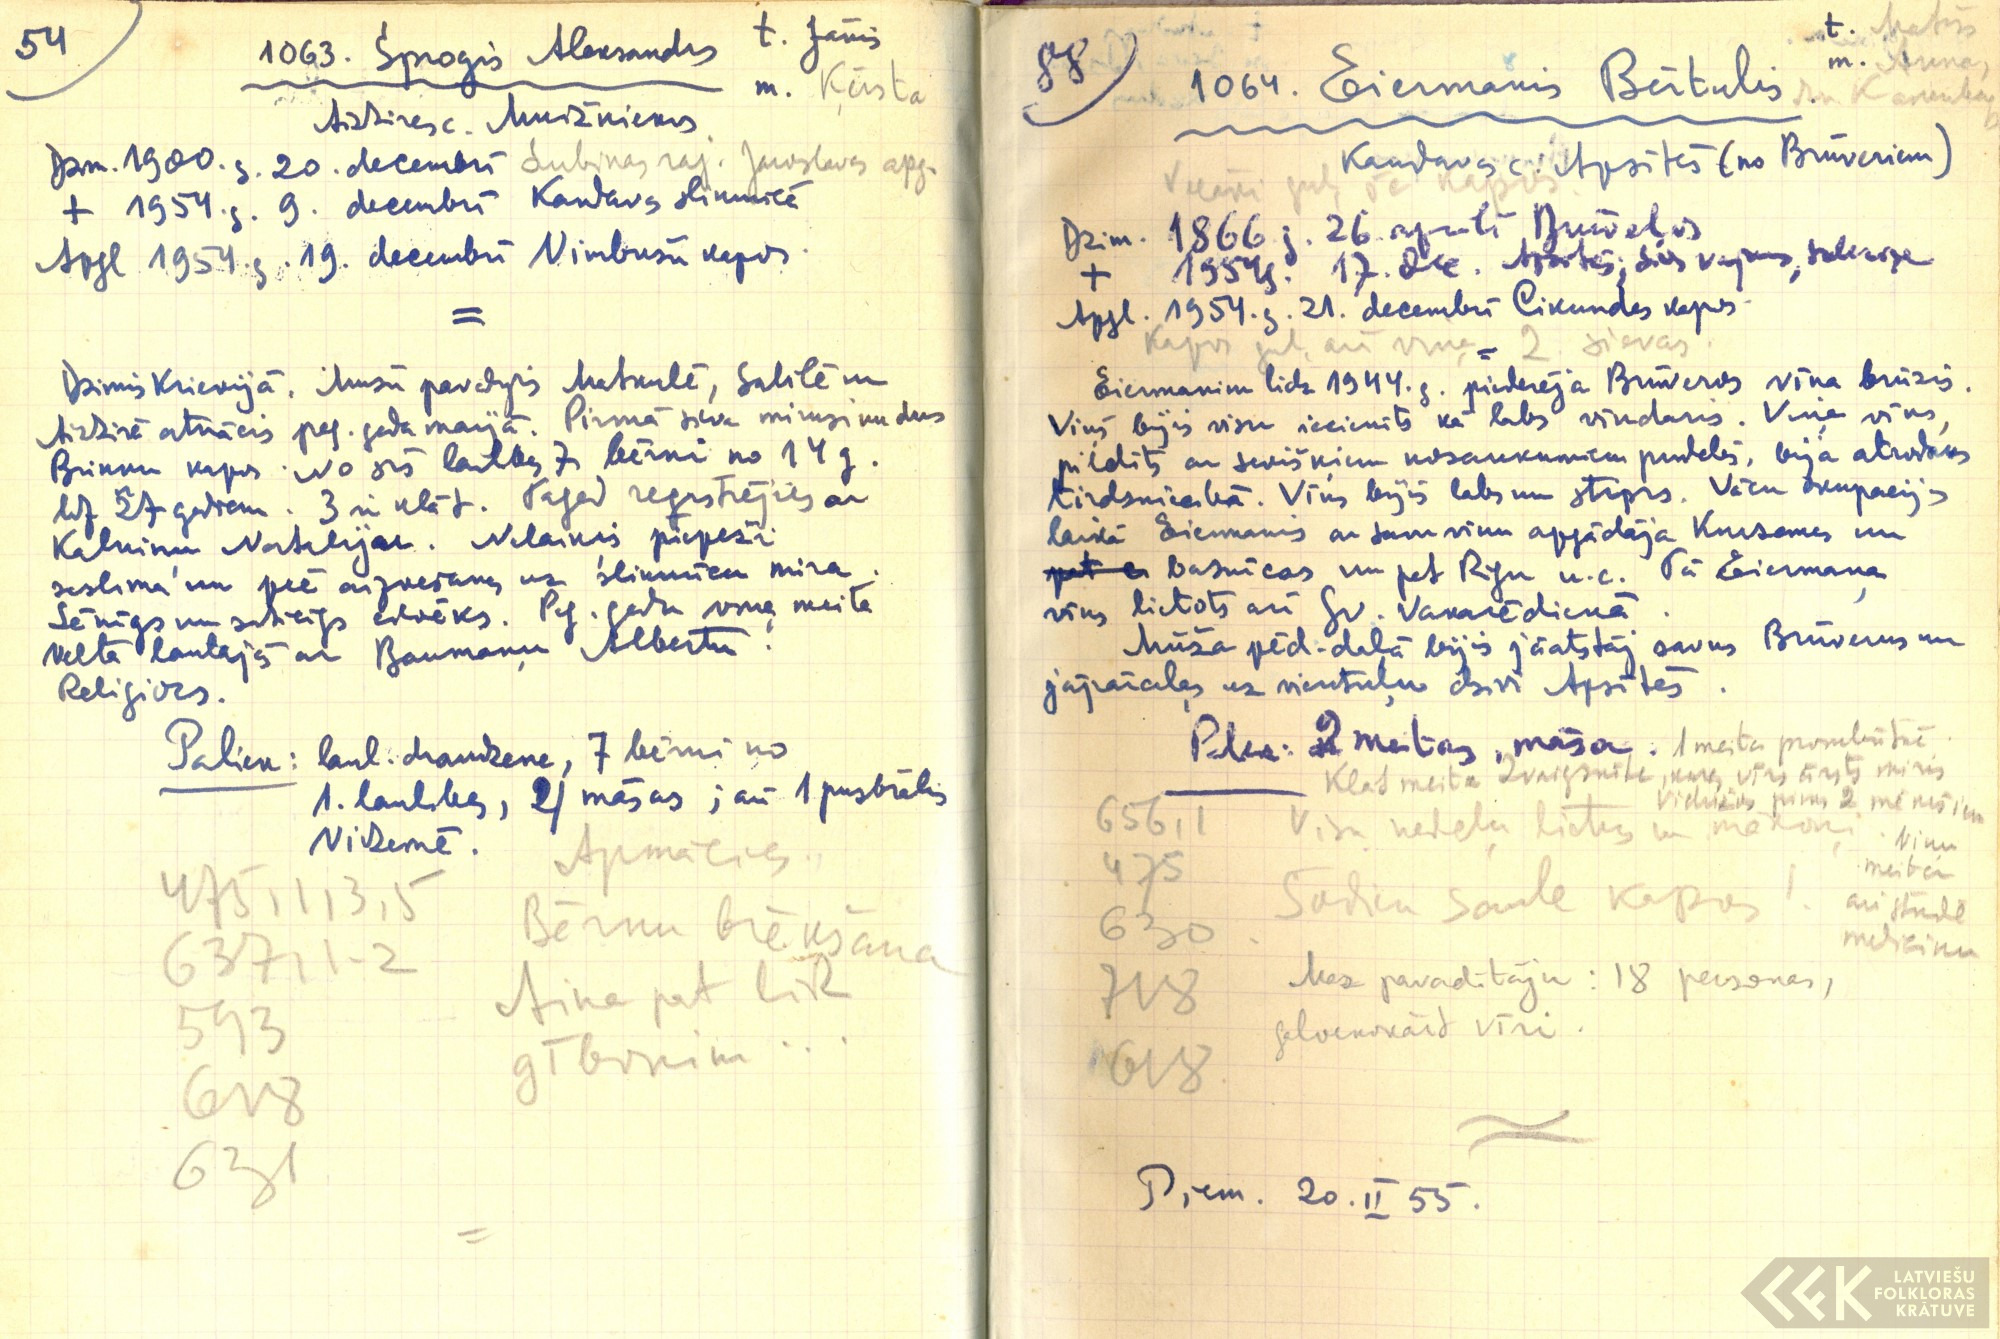 54
1063. Sprogis Aleksandrs
t. Jānis
m. Ķērsta
Aizzires c. Muižniekos
Dzim. 1900. g. 20. decembrī Lubinas raj. Jaroslavas apg.
+ 1954. g. 9. decembrī Kandavas slimnīcā
Apgl 1954. g. 19. decembrī Vimbušu kapos.
=
Dzimis Krievijā. Mūsu pavadzis Matkulē, Sabilē un
Aizzirē atnācis pag. gada maijā. Pirmā sieva mirusi
kapos. No šīs laulības 7 bērni no 14 g.
līdz 27 gadiem. 3 ir klāt. Tagad reģistrējies ar
Kalniņu Natāliju. Nelaiķis piepeši
saslima un pēc aizvešanas uz slimnīcu mira.
Sēnīgs un saticīgs cilvēks. Pag. gadu viņa meita
Velta laulājās ar Baumaņu Albertu.
Religiozs.
Paliek: laul. draudzene, 7 bērni no
1. laulības, 2 māsas; arī 1 pusbrālis
Vidzemē.
475,1,3,5
637,1-2
593
618
631
Apmācies..
Bērnu brēkšana
Aina pat līdz
ģībonim ...
=
88
1064. Eiermanis Bērtulis
t. Matīss
m. Anna,
Kandavas c. Apsītēs (no Brūveriem)
kapos.
Dzim. 1866. g. 26. aprīlī Brūveļos
+ 1954. g. 17. dec. Apsītēs; sirds vājums,
Apgl. 1954. g. 21. decembrī Cikundes kapos.
Kapos guļ arī viņa 2 sievas.
=
Eiermanim līdz 1944. g. piederēja Brūveros vīna brūzis.
Viņš bijis visu iecienīts kā labs vīndaris. Viņa vīns,
pildīts ar sevišķiem nosaukumiem pudelēs, bija atrodams
tirdzniecībā. Vīns bijis labs un stiprs. Vācu okupācijas
laikā Eiermanis ar savu vīnu apgādāja Kurzemes un
baznīcas un pat Rīgu u.c. Tā Eiermaņa
vīns lietots arī Sv. Vakarēdienā.
Mūža pēd. daļā bijis jāatstāj savus Brūverus un
jāpārceļas uz vientuļu dzīvi Apsītēs.
Paliek: 2 meitas, māsa. 1 meita prombūtnē.
Klāt meita Zvaigznīte, kuras vīrs ārsts miris
pirms 2 mēnešiem
Viņu
meita
arī studē
medicīnu
656,1
475
630
718
618
Visu nedēļu lietus un mākoņi.
Šodien saule kapos!
Maz pavadītāju: 18 personas,
galvenokārt vīri.
Piem. 20. II 55.
LATVIEŠU
FOLKLORAS
KRĀTUVE